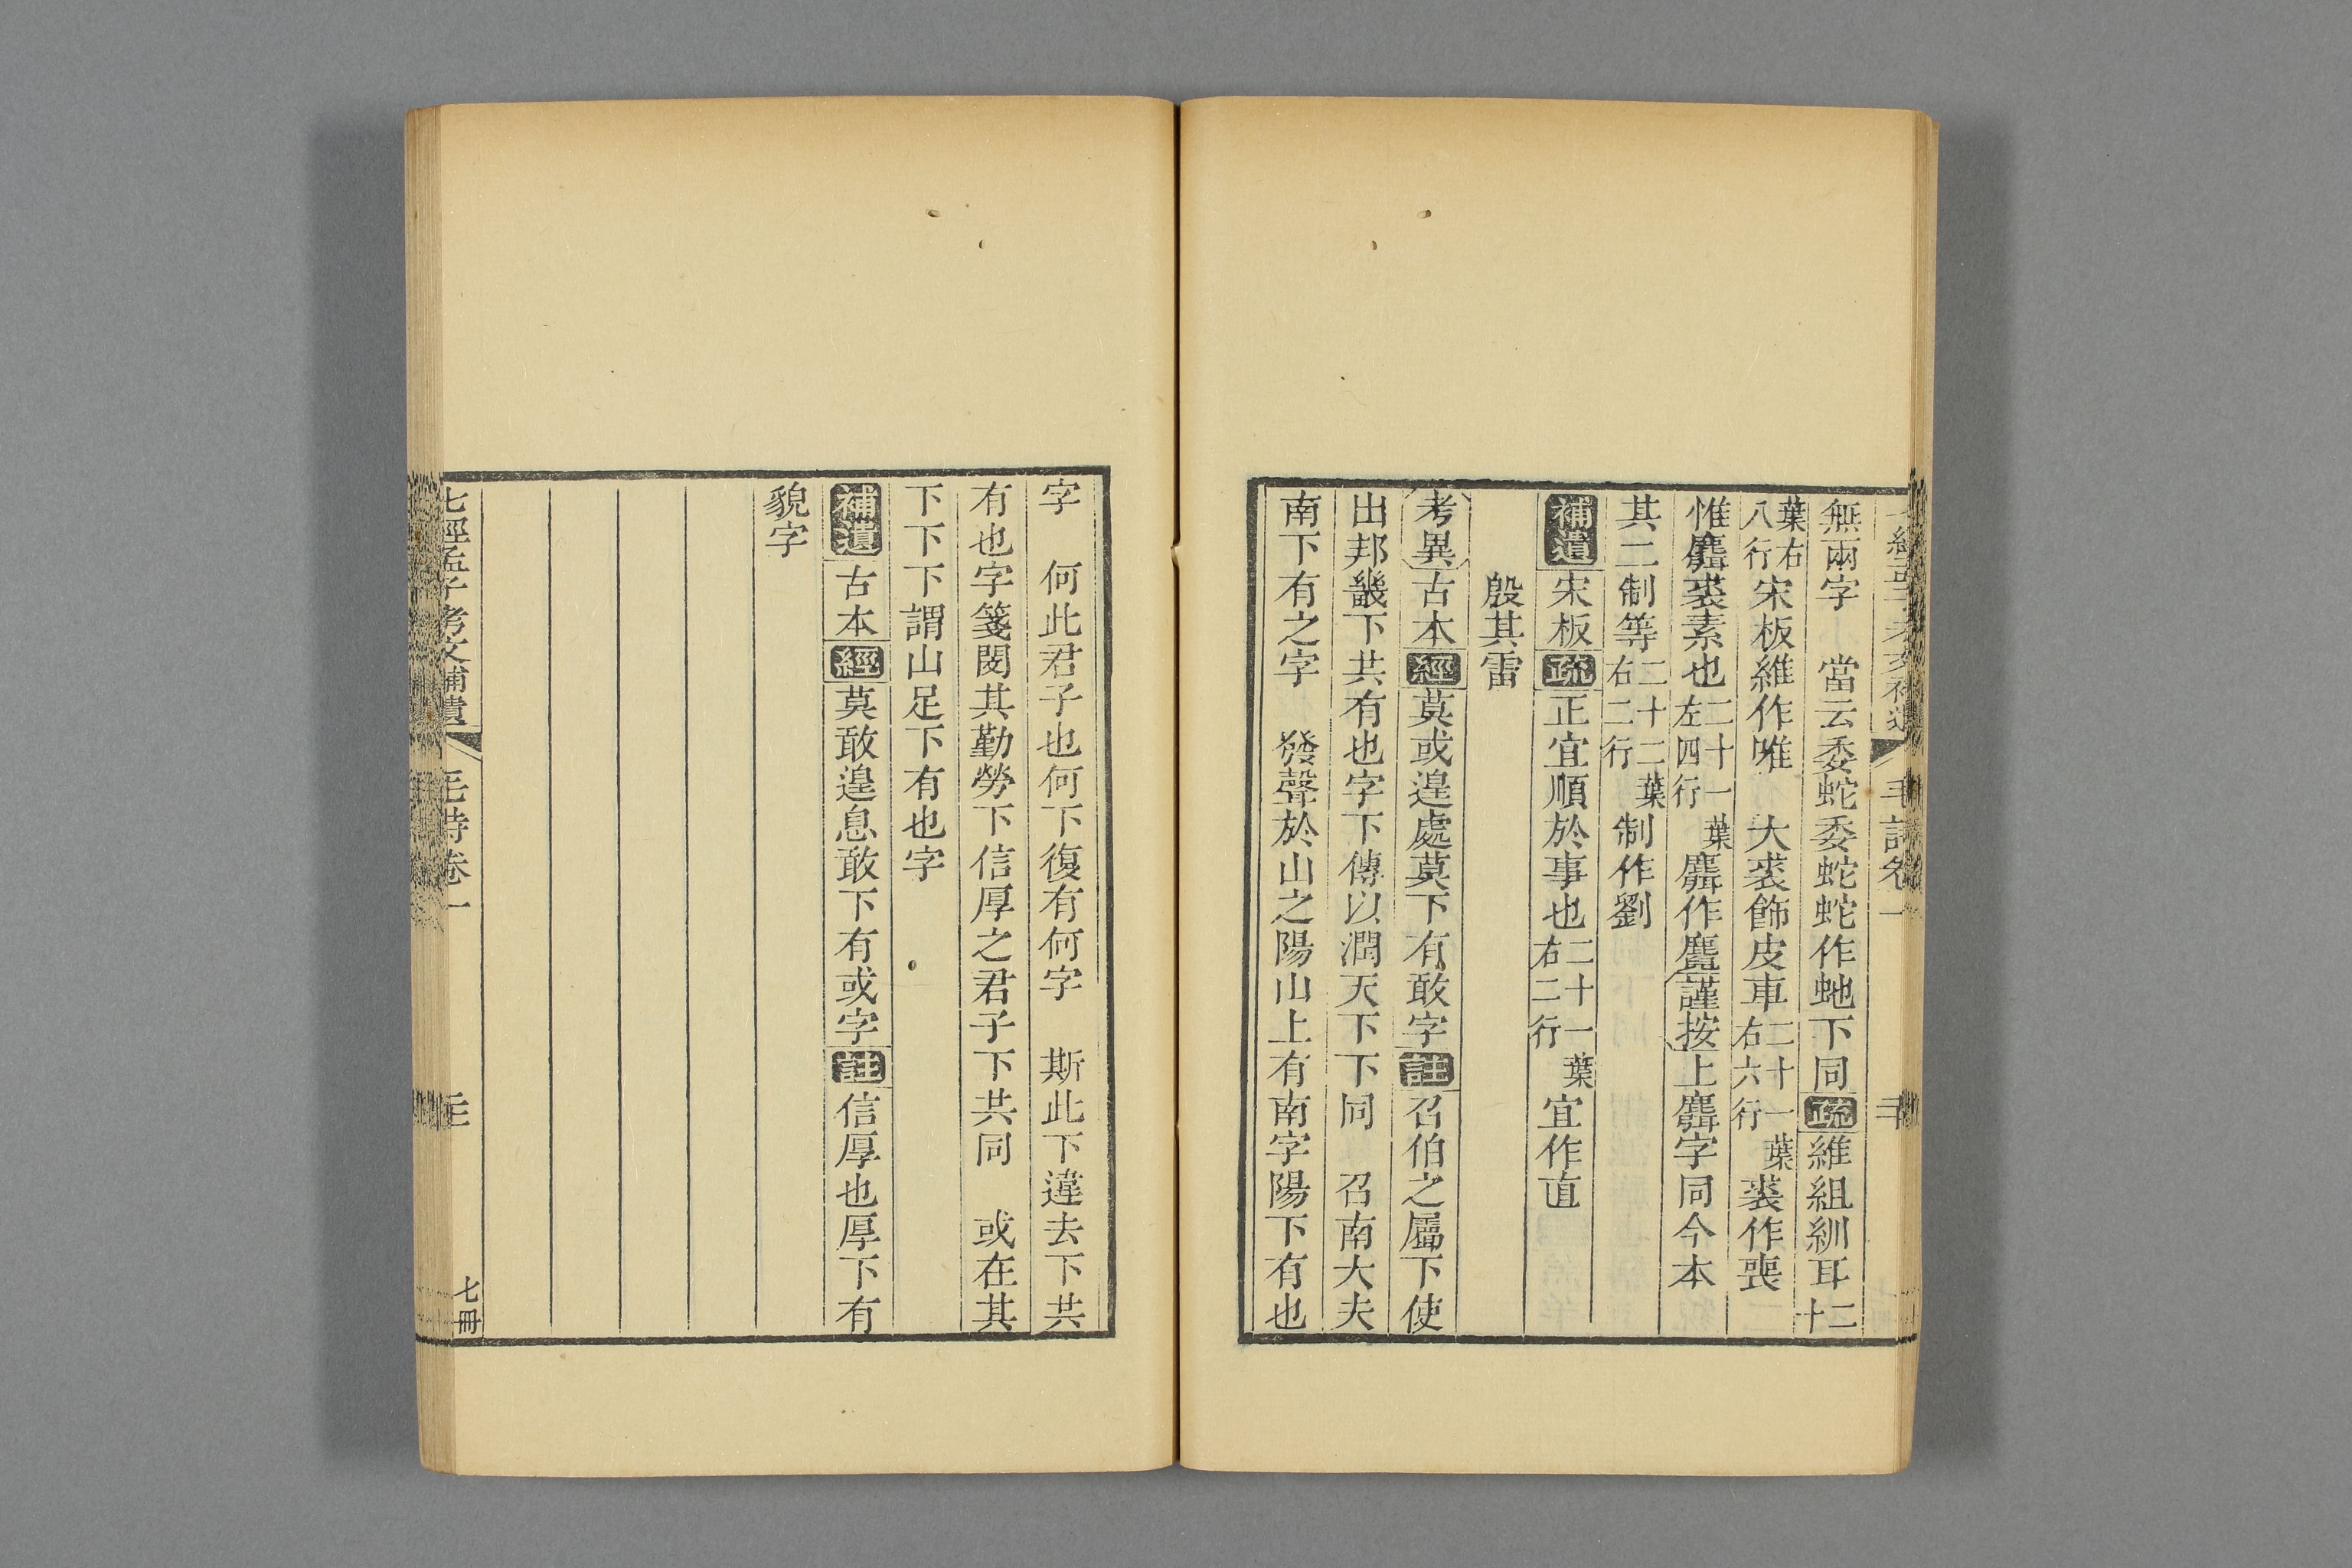 無兩字　當云委蛇委蛇蛇作虵下同疏維組紃耳二十
葉右八行宋板維作唯　大裘飾皮車二十一葉右六行裘作喪
惟麛裘素也二十一葉左四行麛作麑謹按上麛字同今本
其二制等二十二葉右二行制作劉
補遺宋板疏正宜順於事也二十一葉右二行宜作直
殷其雷
考異古本經莫或遑處莫下有敢字註召伯之屬下使
出邦畿下共有也字下傳以潤天下下同　召南大夫
南下有之字　發聲於山之陽山上有南字陽下有也
字　何此君子也何下復有何字　斯此下違去下共
有也字箋閔其勤勞下信厚之君子下共同　或在其
下下下謂山足下有也字
補遺古本經莫敢遑息敢下有或字註信厚也厚下有
貌字
七經孟子考文補遺　毛詩卷一　七冊